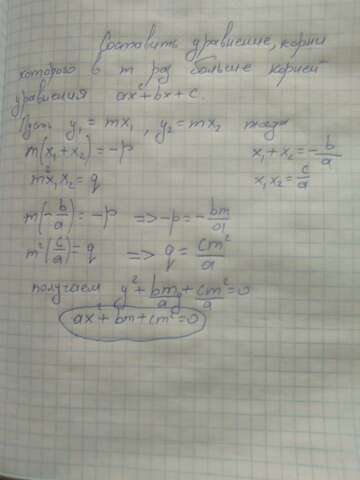 Составить уравнение, корни
которого в m раз больше корней
уравнения ax²+bx+c.
Пусть y₁ = mx₁ , y₂ = mx₂ тогда
m(x₁+x₂) = -p x₁+x₂ = -b/a
m²x₁x₂ = q x₁x₂ = c/a
m(-b/a) = -p => -p = -bm/a
m²(c/a) = q => q = cm²/a
получаем y² + bmy/a + cm²/a = 0
ax²+bm+cm²=0